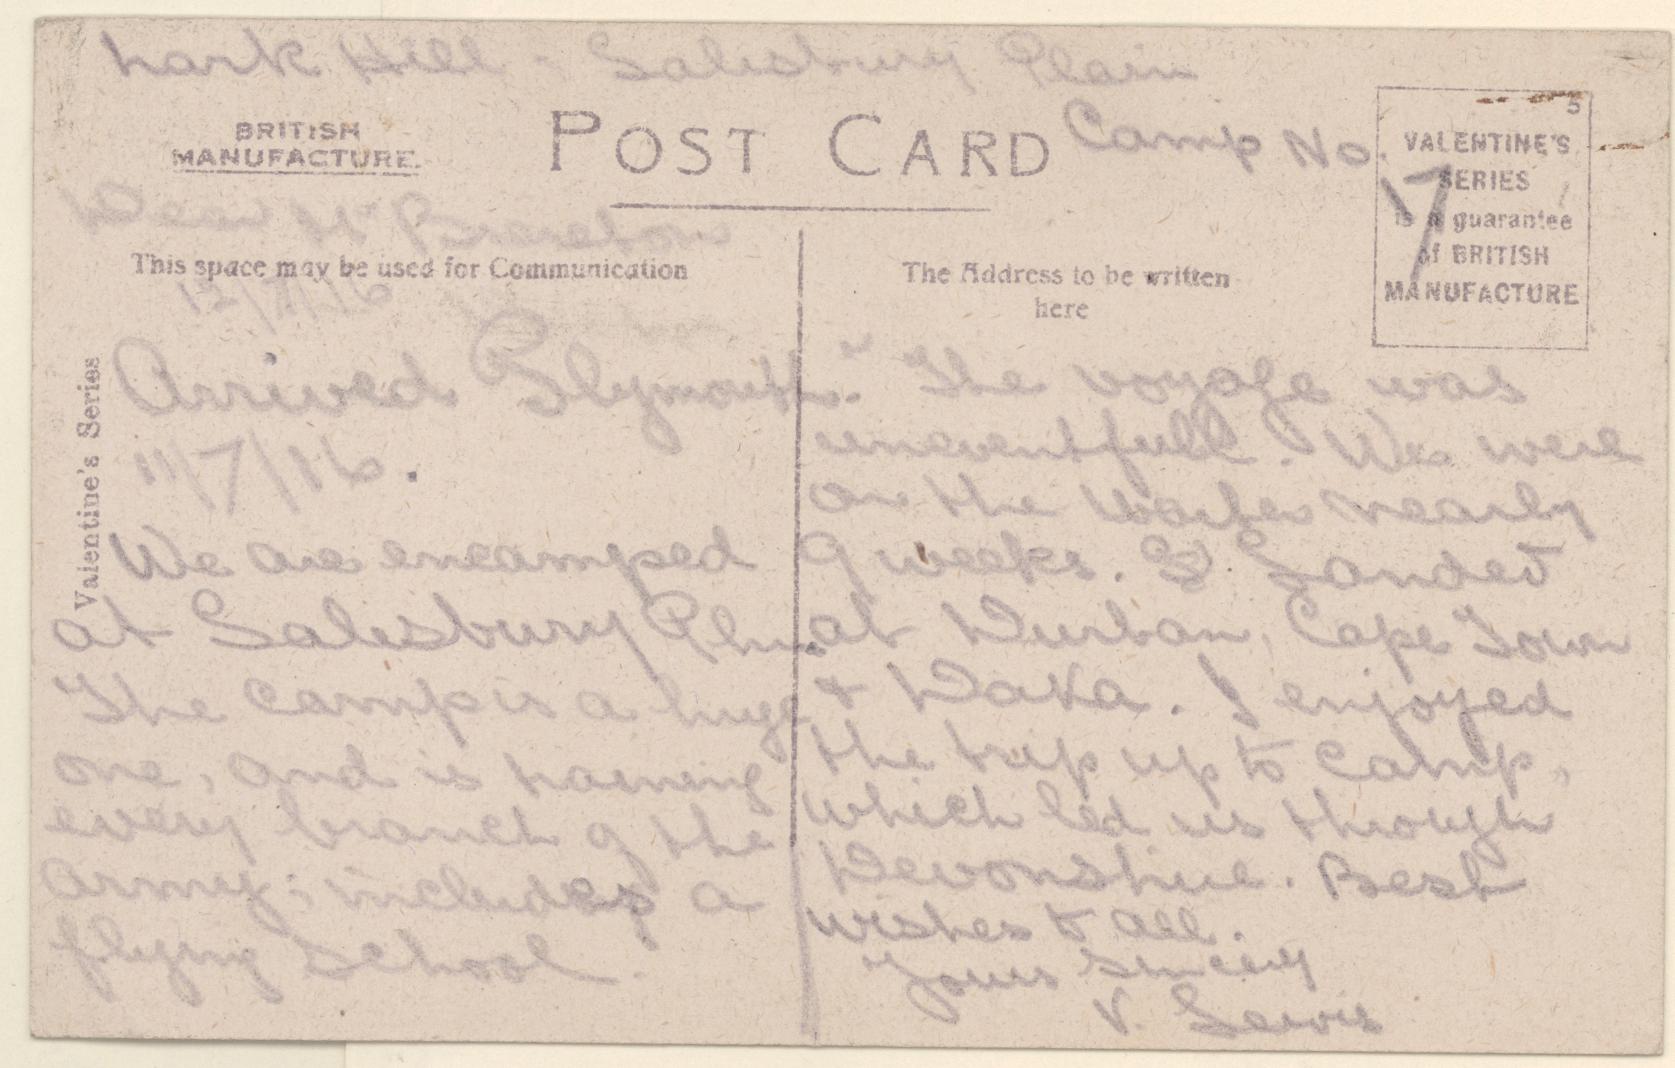 Lark Hill - Salisbury Plain
Camp No. 17
BRITISH
MANUFACTURE.
POST CARD
5
VALENTINE'S
SERIES
is a guarantee
of BRITISH
MANUFACTURE
Dear Mr Brereton
This space may be used for Communication
12/7/16
The Address to be written
here
Valentine's Series
Arrived Plymouth
11/7/16.
We are encamped
at Salisbury Pln.
The camp is a huge
one, and is training
every branch of the
Army; includes a
flying school.
The voyage was
uneventfull. We were
on the water nearly
9 weeks. Landed
at Durban, Cape Town
& Daka. I enjoyed
the trip up to camp,
which led us through
Devonshire. Best
wishes to all.
Yours sincerely
V. Lewis